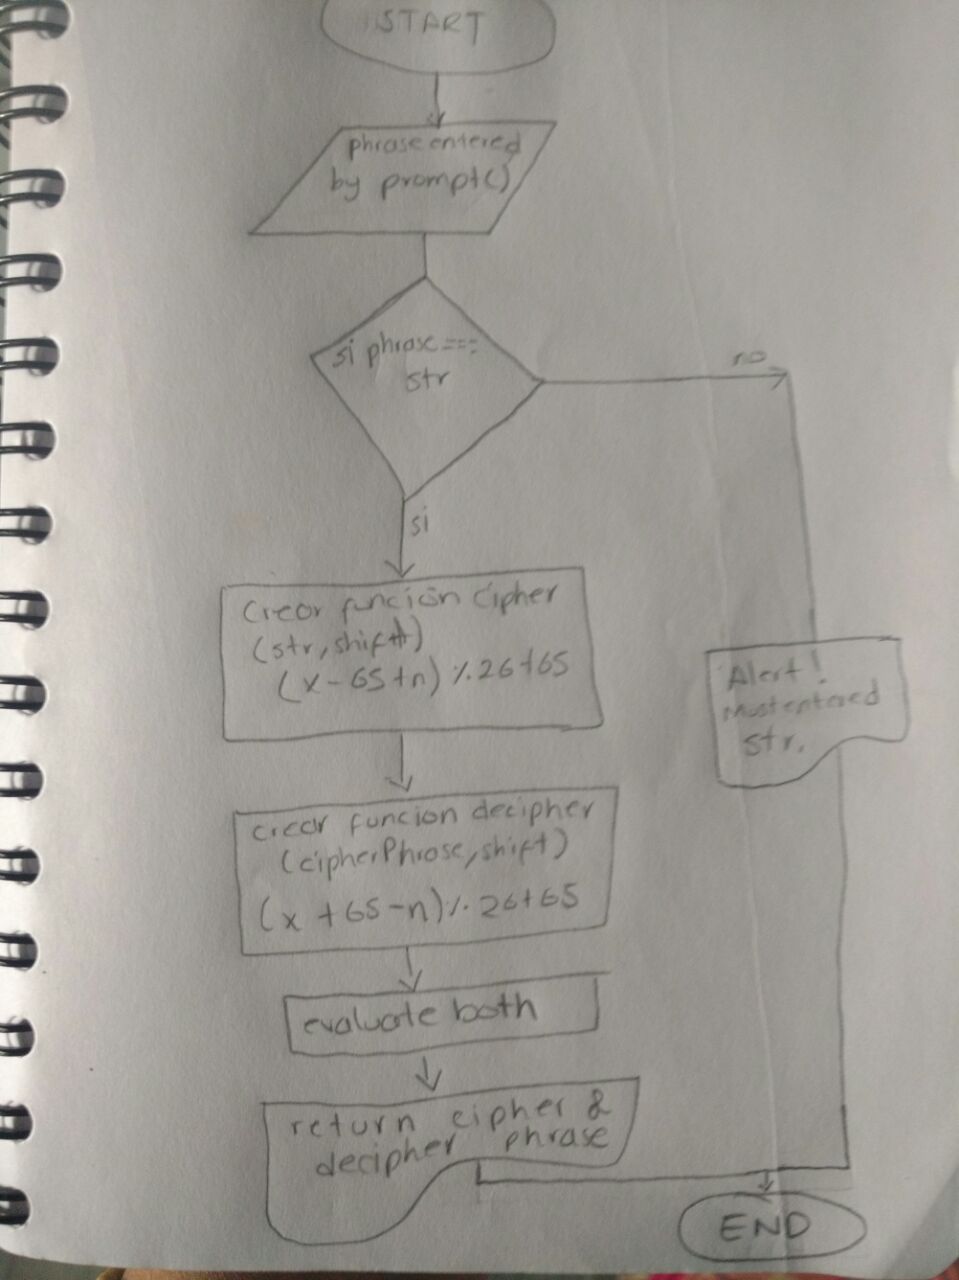 START
phrase entered
by prompt()
si phrase ===
str
no
si
Crear función cipher
(str, shift)
(x - 65 + n) % 26 + 65
Alert!
Must entered
str.
crear funcion decipher
(cipherPhrase, shift)
(x + 65 - n) % 26 + 65
evaluate both
return cipher &
decipher phrase
END